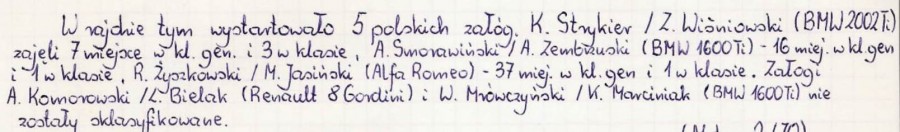 W rajdzie tym wystartowało 5 polskich załóg. K. Strykier / Z. Wiśniowski (BMW 2002Ti)
zajeli 7 miejsce w kl. gen. i 3 w klasie, A. Smorawiński / A. Zembrzuski (BMW 1600Ti) - 16 miej. w kl. gen
i 1 w klasie, R. Żyszkowski / M. Jasiński (Alfa Romeo) - 37 miej. w kl. gen i 1 w klasie. Załogi
A. Komorowski / Z. Bielak (Renault 8 Gordini) i W. Mrówczyński / K. Marciniak (BMW 1600Ti) nie
zostały sklasyfikowane.